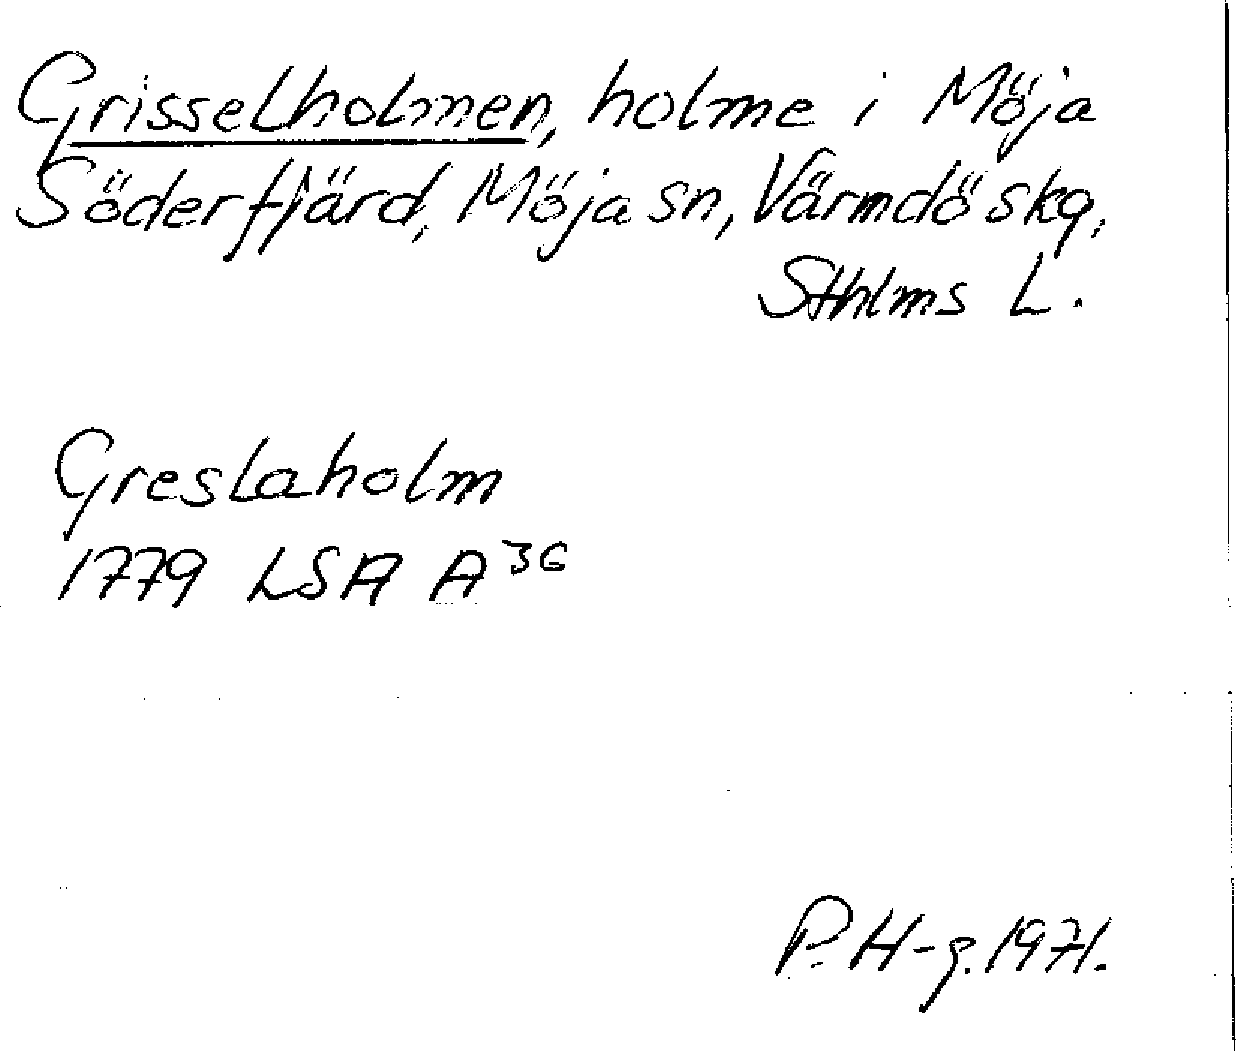 Grisselholmen, holme i Möja
Söderfjärd, Möja sn, Värmdö skg,
Sthlms L.
Greslaholm
1779 LSA A³⁶
P. H-g. 1971.